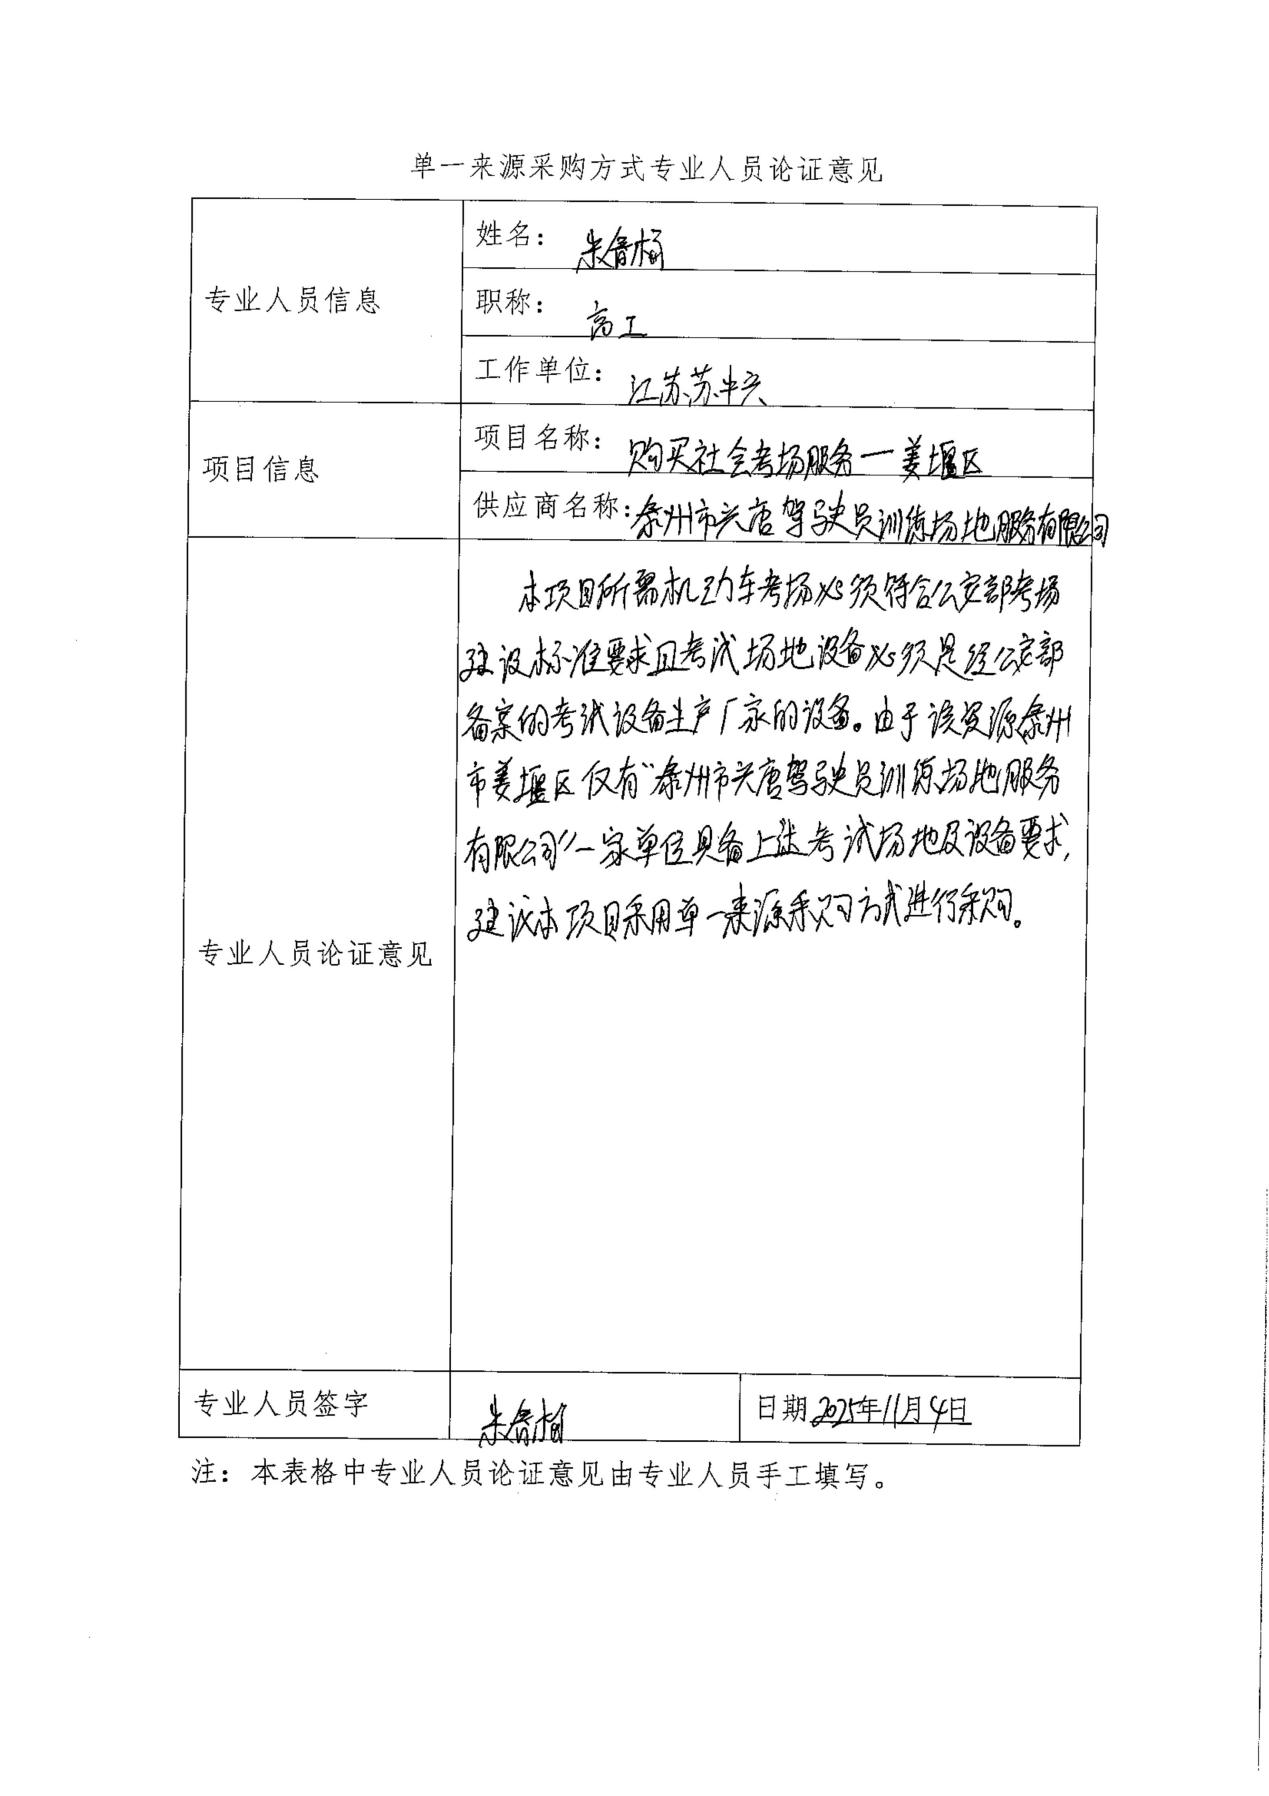 单一来源采购方式专业人员论证意见
专业人员信息
姓名：
职称：高工
工作单位：江苏苏中兴
项目信息
项目名称：购买社会考场服务一姜堰区
供应商名称：泰州市兴唐驾驶员训练场地服务有限公司
专业人员论证意见
本项目所需机动车考场必须符合公安部考场
建设标准要求且考试场地设备必须是经公安部
备案的考试设备生产厂家的设备。由于该资源泰州
市姜堰区仅有“泰州市兴唐驾驶员训练场地服务
有限公司”一家单位具备上述考试场地及设备要求，
建议本项目采用单一来源采购方式进行采购。
专业人员签字
日期 2025年11月4日
注：本表格中专业人员论证意见由专业人员手工填写。